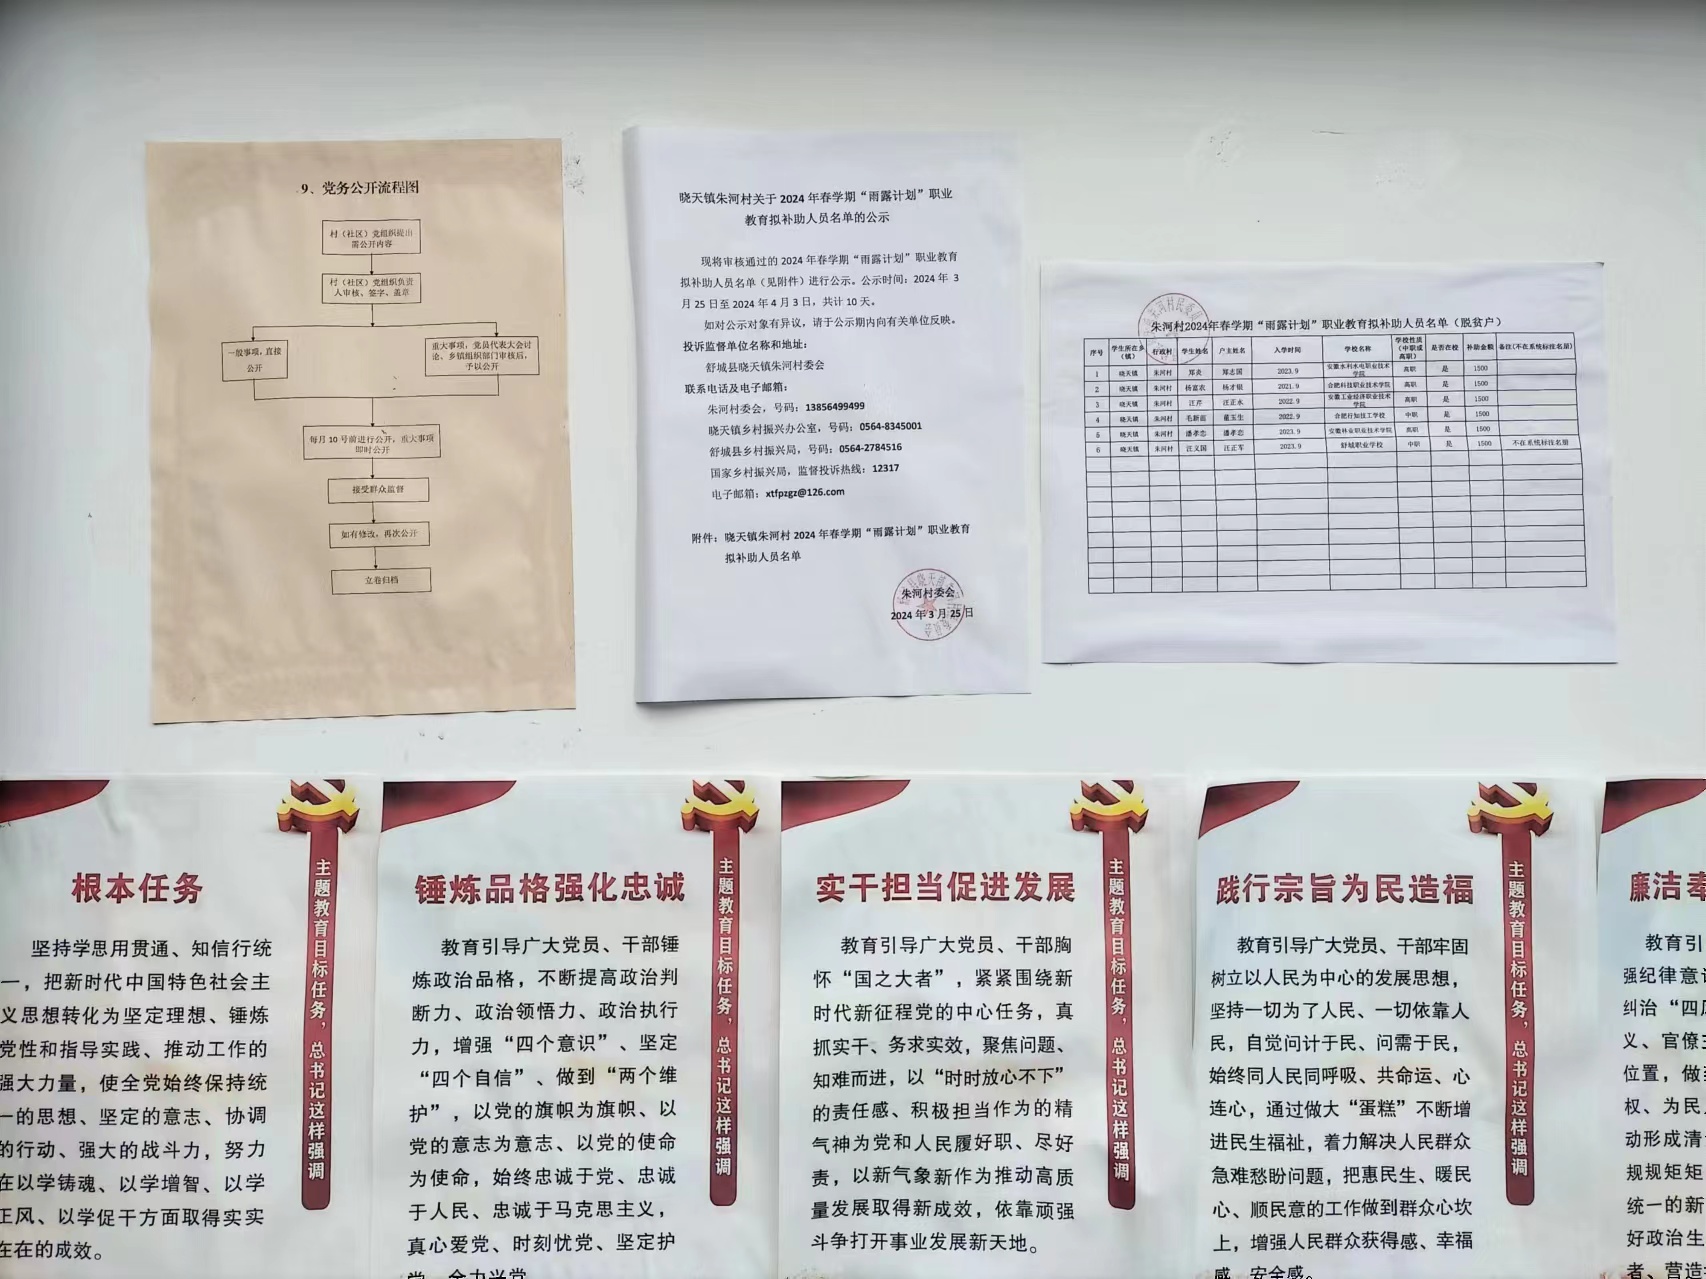 9、党务公开流程图
村（社区）党组织提出
需公开内容
村（社区）党组织负责
人审核、签字、盖章
一般事项，直接
公开
重大事项，党员代表大会讨
论、乡镇组织部门审核后，
予以公开
每月10号前进行公开，重大事项
即时公开
接受群众监督
如有修改，再次公开
立卷归档
晓天镇朱河村关于2024年春学期“雨露计划”职业
教育拟补助人员名单的公示
现将审核通过的2024年春学期“雨露计划”职业教育
拟补助人员名单（见附件）进行公示。公示时间：2024年3
月25日至2024年4月3日，共计10天。
如对公示对象有异议，请于公示期内向有关单位反映。
投诉监督单位名称和地址：
舒城县晓天镇朱河村委会
联系电话及电子邮箱：
朱河村委会，号码：13856499499
晓天镇乡村振兴办公室，号码：0564-8345001
舒城县乡村振兴局，号码：0564-2784516
国家乡村振兴局，监督投诉热线：12317
电子邮箱：xtfpzgz@126.com
附件：晓天镇朱河村2024年春学期“雨露计划”职业教育
拟补助人员名单
朱河村委会
2024年3月25日
朱河村2024年春学期“雨露计划”职业教育拟补助人员名单（脱贫户）
序号 学生所在乡（镇） 行政村 学生姓名 户主姓名 入学时间 学校名称 学校性质（中职或高职） 是否在校 补助金额 备注(不在系统标注名册)
1 晓天镇 朱河村 郑炎 郑志国 2023.9 安徽水利水电职业技术学院 高职 是 1500
2 晓天镇 朱河村 杨富农 杨才银 2021.9 合肥科技职业技术学院 高职 是 1500
3 晓天镇 朱河村 汪芹 汪正水 2022.9 安徽工业经济职业技术学院 高职 是 1500
4 晓天镇 朱河村 毛新雨 董玉生 2022.9 合肥行知技工学校 中职 是 1500
5 晓天镇 朱河村 潘孝恋 潘孝恋 2023.9 安徽林业职业技术学院 高职 是 1500
6 晓天镇 朱河村 汪义国 汪正军 2023.9 舒城职业学校 中职 是 1500 不在系统标注名册
根本任务
坚持学思用贯通、知信行统
一，把新时代中国特色社会主
义思想转化为坚定理想、锤炼
党性和指导实践、推动工作的
强大力量，使全党始终保持统
一的思想、坚定的意志、协调
的行动、强大的战斗力，努力
在以学铸魂、以学增智、以学
正风、以学促干方面取得实实
在在的成效。
主题教育目标任务，总书记这样强调
锤炼品格强化忠诚
教育引导广大党员、干部锤
炼政治品格，不断提高政治判
断力、政治领悟力、政治执行
力，增强“四个意识”、坚定
“四个自信”、做到“两个维
护”，以党的旗帜为旗帜、以
党的意志为意志、以党的使命
为使命，始终忠诚于党、忠诚
于人民、忠诚于马克思主义，
真心爱党、时刻忧党、坚定护
党、全力兴党
主题教育目标任务，总书记这样强调
实干担当促进发展
教育引导广大党员、干部胸
怀“国之大者”，紧紧围绕新
时代新征程党的中心任务，真
抓实干、务求实效，聚焦问题、
知难而进，以“时时放心不下”
的责任感、积极担当作为的精
气神为党和人民履好职、尽好
责，以新气象新作为推动高质
量发展取得新成效，依靠顽强
斗争打开事业发展新天地。
主题教育目标任务，总书记这样强调
践行宗旨为民造福
教育引导广大党员、干部牢固
树立以人民为中心的发展思想，
坚持一切为了人民、一切依靠人
民，自觉问计于民、问需于民，
始终同人民同呼吸、共命运、心
连心，通过做大“蛋糕”不断增
进民生福祉，着力解决人民群众
急难愁盼问题，把惠民生、暖民
心、顺民意的工作做到群众心坎
上，增强人民群众获得感、幸福
感、安全感。
主题教育目标任务，总书记这样强调
廉洁奉
教育引
强纪律意识
纠治“四风
义、官僚主
位置，做到
权、为民
动形成清
规规矩矩
统一的新
好政治生
者、营造